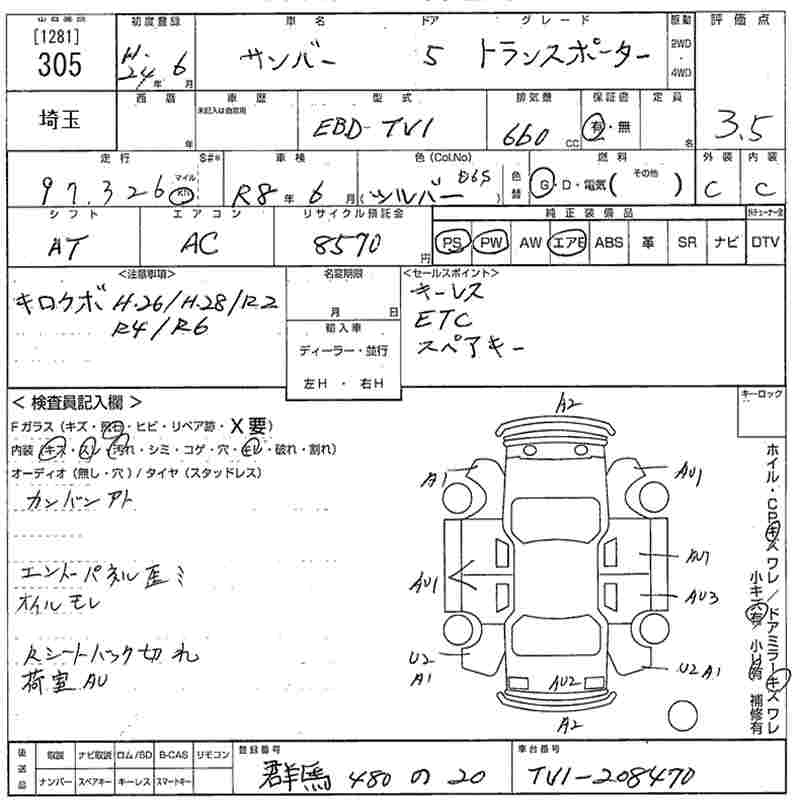 [1281]
305
初度登録
H.24年6月
車名
サンバー
ドア
5
グレード
トランスポーター
駆動
2WD
・
4WD
評価点
3.5
埼玉
西暦
年
車歴
未記入は自家用
型式
EBD-TV1
排気量
660 CC
保証書
有・無
定員
名
走行
97,326
マイル
km
S#*
車検
R8年6月
色(Col.No)
(シルバー D6S)
色替
燃料
G・D・電気( その他 )
外装
C
内装
C
シフト
AT
エアコン
AC
リサイクル預託金
8570円
純正装備品
PS PW AW エアB ABS 革 SR ナビ
DTV
<注意事項>
キロクボ H.26/H.28/R2
R4/R6
名変期限
月 日
輸入車
ディーラー・並行
左H ・ 右H
<セールスポイント>
キーレス
ETC
スペアキー
キーロック
< 検査員記入欄 >
Fガラス(キズ・飛石・ヒビ・リペア跡・X要)
内装(キズ・スレ・汚れ・シミ・コゲ・穴・モレ・破れ・割れ)
オーディオ(無し・穴)/タイヤ(スタッドレス)
カンバンアト
エントーパネル歪ミ
オイルモレ
Rシートバック切れ
荷室AU
A2
A1
AU1
AU1
AU1
AU3
U2
A1
AU2
U2 A1
A2
ホイル・CPキズワレ/ドアミラーキズワレ
小キズ有/小U有 補修有
後送品
取説 ナビ取説 ロム/BD B-CAS リモコン
ナンバー スペアキー キーレス スマートキー
登録番号
群馬 480 の 20
車台番号
TV1-208470